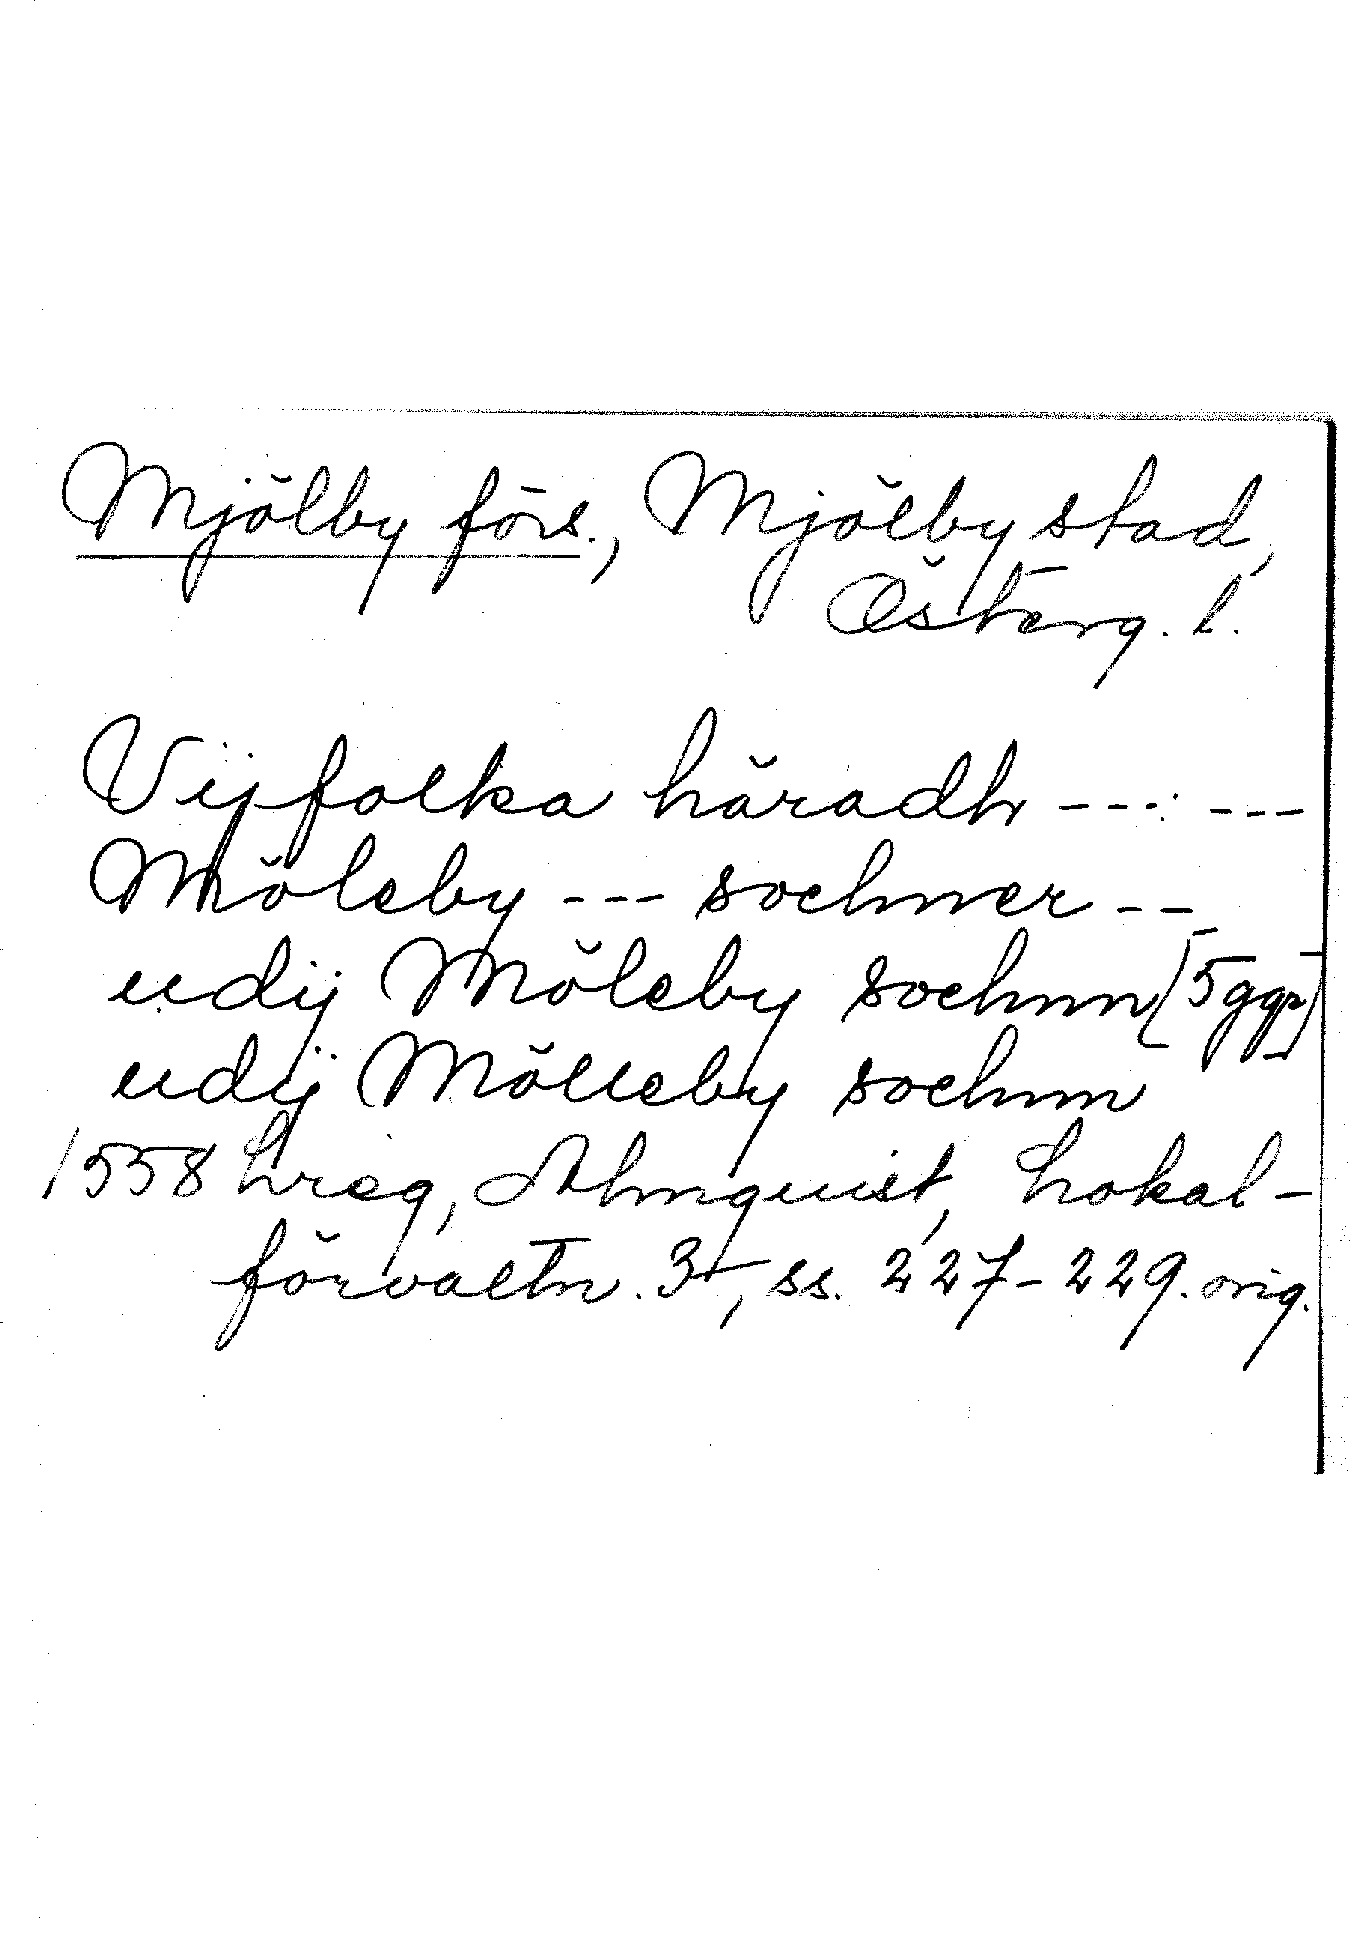 Mjölby förs., Mjölby stad,
Österg. l.
Vijfolka häradh --- ---
Möleby --- sochner --
udij Möleby sochnn [5 ggr]
udij Mölleby sochnn
1558 Lreg, Almquist, Lokal-
förvaltn. 3, ss. 227-229. orig.